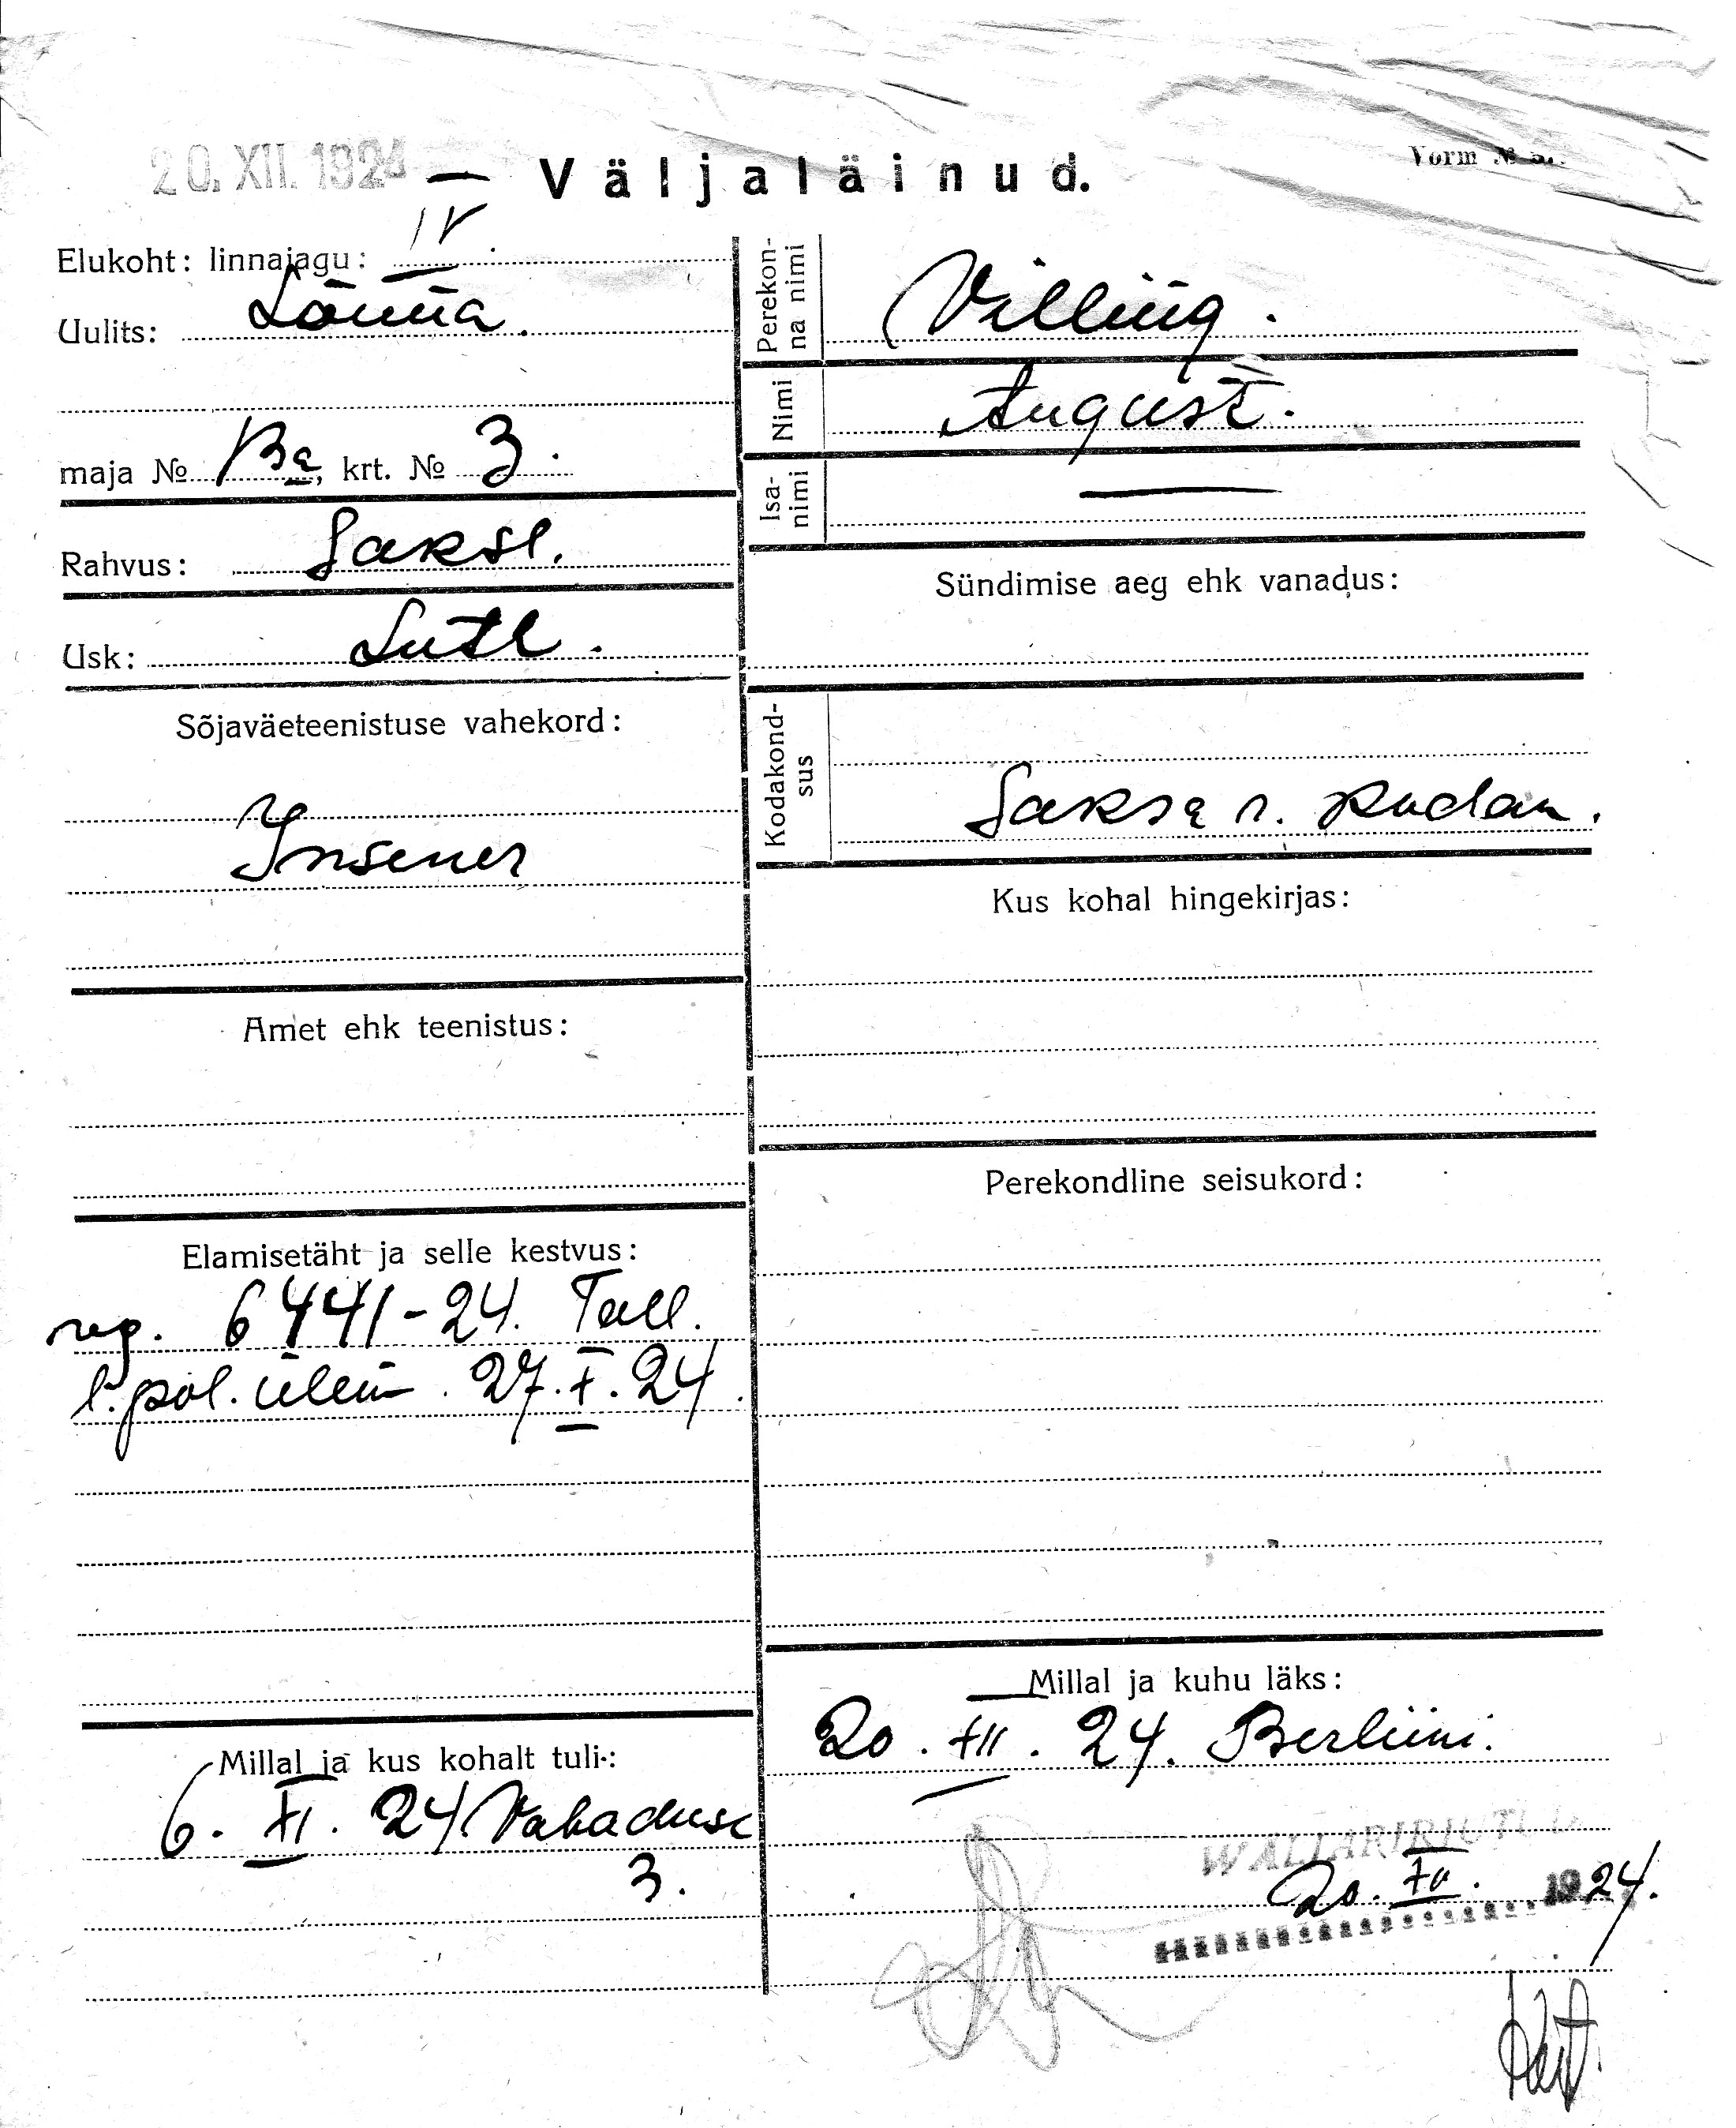 20. XII. 1924
Väljaläinud.
Elukoht: linnajagu: IV.
Uulits:
maja № 13a, krt. № 3.
Rahvus: Saksl.
Usk: Lutl.
Sõjaväeteenistuse vahekord:
Insener
Amet ehk teenistus:
Elamisetäht ja selle kestvus:
reg. 6441-24. Tall.
l. pol. ülem 27.X.24.
Millal ja kus kohalt tuli:
6. XI. 24 Vabaduse
3.
Perekonna nimi
Villing.
Nimi
August.
Isa-
nimi
—
Sündimise aeg ehk vanadus:
Kodakond-
sus
Saksa r. kodan.
Kus kohal hingekirjas:
Perekondline seisukord:
Millal ja kuhu läks:
20. XII. 24. Berliini.
20. XII. 1924.